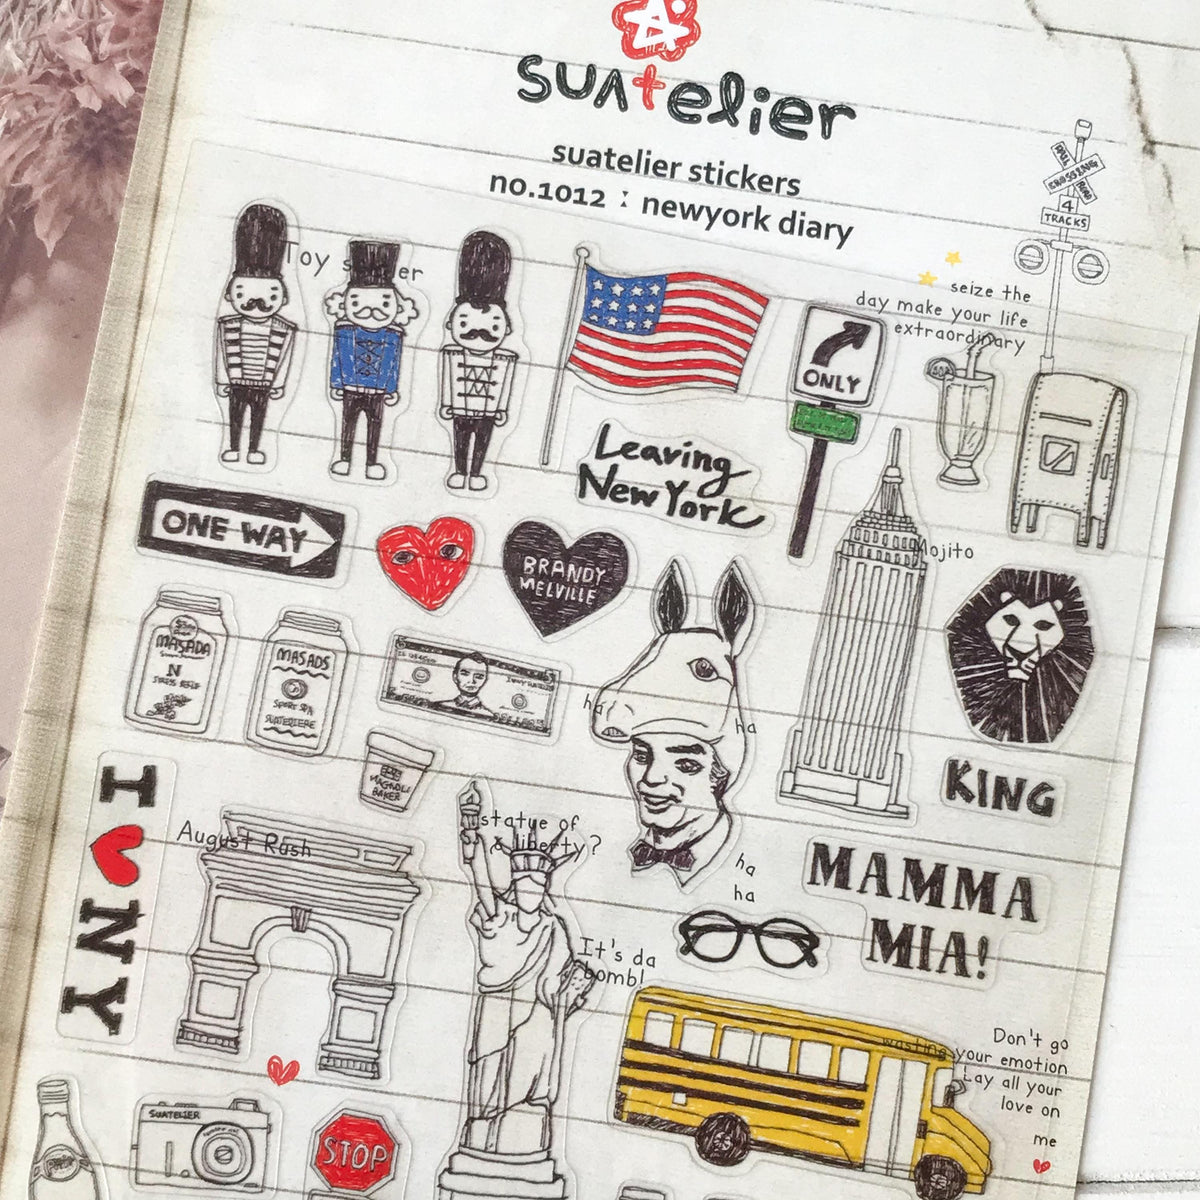 suatelier
suatelier stickers
no.1012 : newyork diary
RAIL
CROSSING
ROAD
4
TRACKS
Toy
seize the
day make your life
extraordinary
ONLY
Leaving
New York
ONE WAY
BRANDY
MELVILLE
Mojito
MASADA
N
STRESS RELIEF
MASADS
SPORT SPA
SUATELIERE
ha
ha
MAGNOLI
BAKER
KING
I ♥ NY
August Rush
statue of
liberty?
ha
ha
MAMMA
MIA!
It's da
bomb!
Don't go
wasting your emotion
Lay all your
love on
me
SUATELIER
STOP